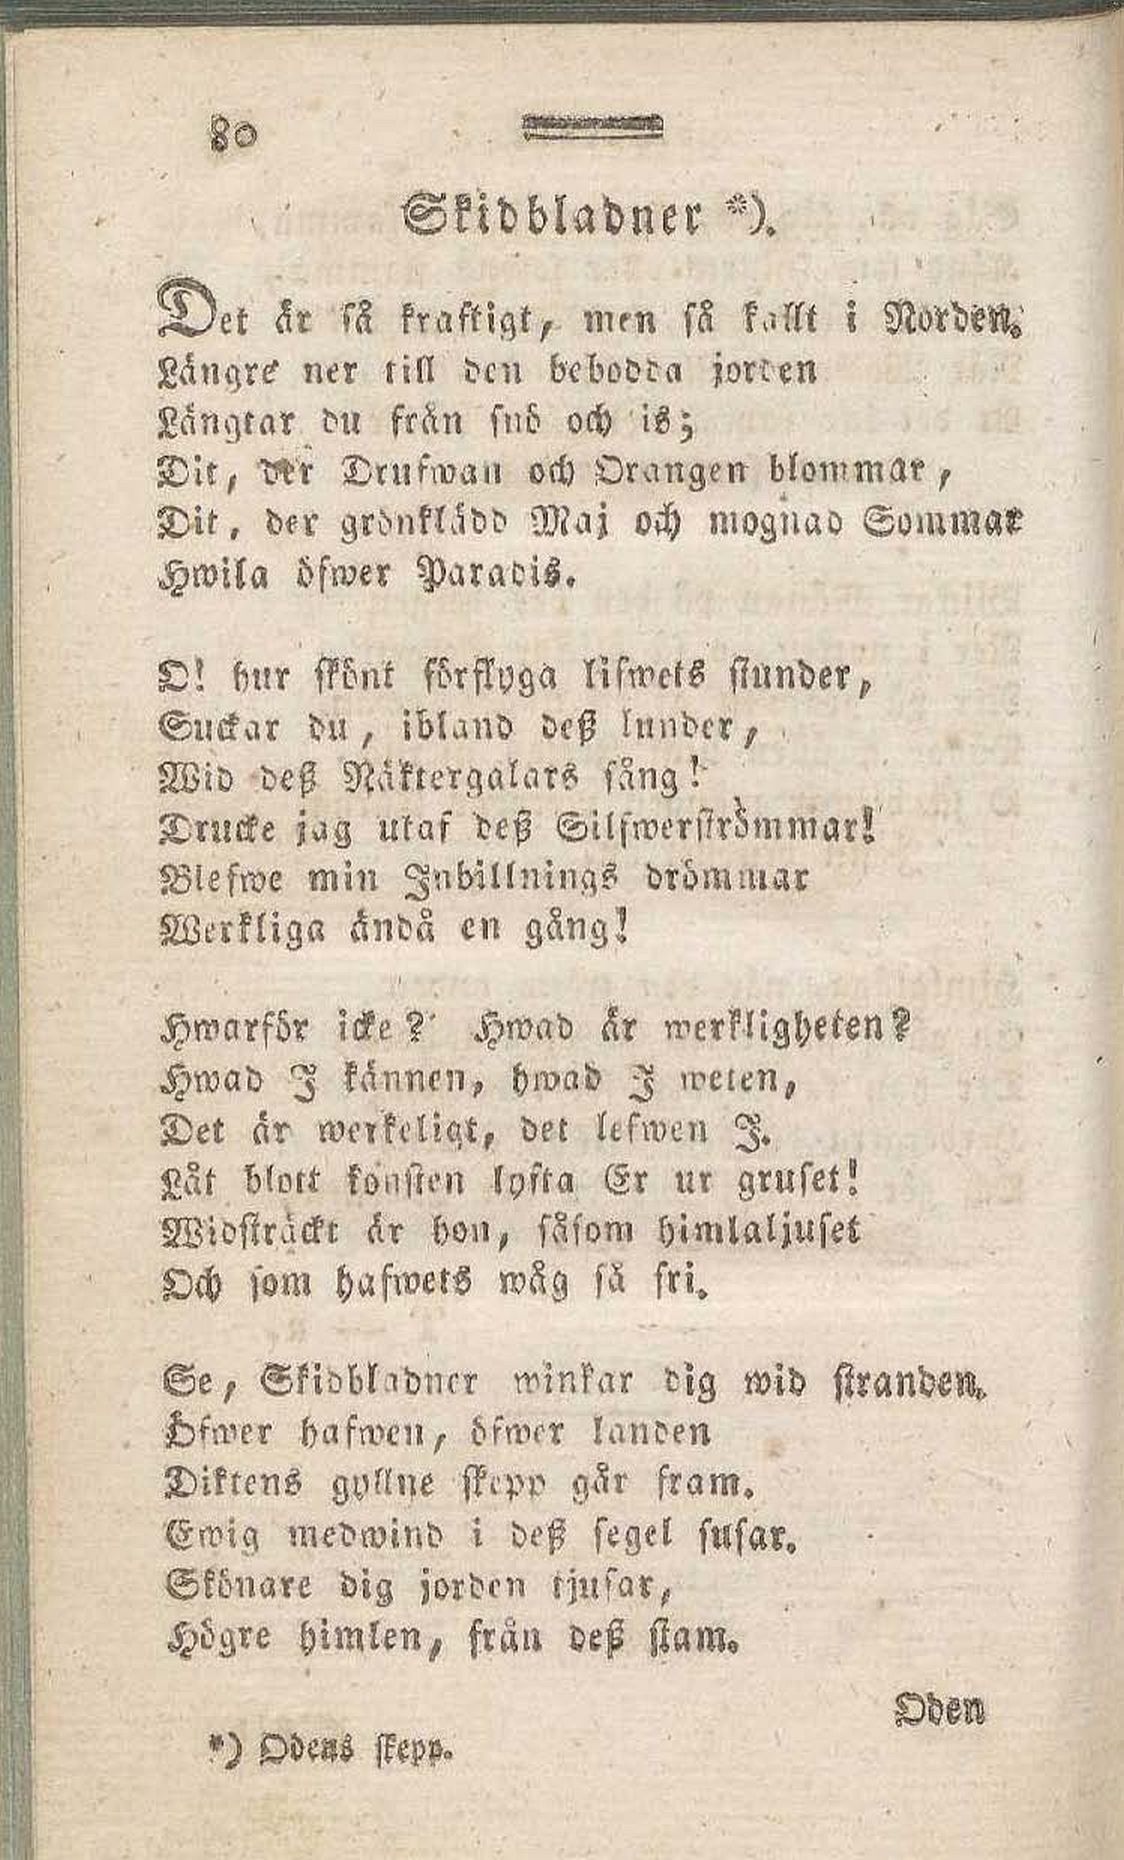 80
Skidbladner *).
Det är så kraftigt, men så kallt i Norden.
Längre ner till den bebodda jorden
Längtar du från snö och is;
Dit, der Drufwan och Orangen blommar,
Dit, der grönklädd Maj och mognad Sommar
Hwila öfwer Paradis.
O! hur skönt förflyga lifwets stunder,
Suckar du, ibland deß lunder,
Wid deß Näktergalars sång!
Drucke jag utaf deß Silfwerströmmar!
Blefwe min Inbillnings drömmar
Werkliga ändå en gång!
Hwarför icke? Hwad är werkligheten?
Hwad I kännen, hwad I weten,
Det är werkeligt, det lefwen I.
Låt blott konsten lyfta Er ur gruset!
Widsträckt är hon, såsom himlaljuset
Och som hafwets wåg så fri.
Se, Skidbladner winkar dig wid stranden.
Öfwer hafwen, öfwer landen
Diktens gyllne skepp går fram.
Ewig medwind i deß segel susar.
Skönare dig jorden tjusar,
Högre himlen, från deß stam.
Oden
*) Odens skepp.